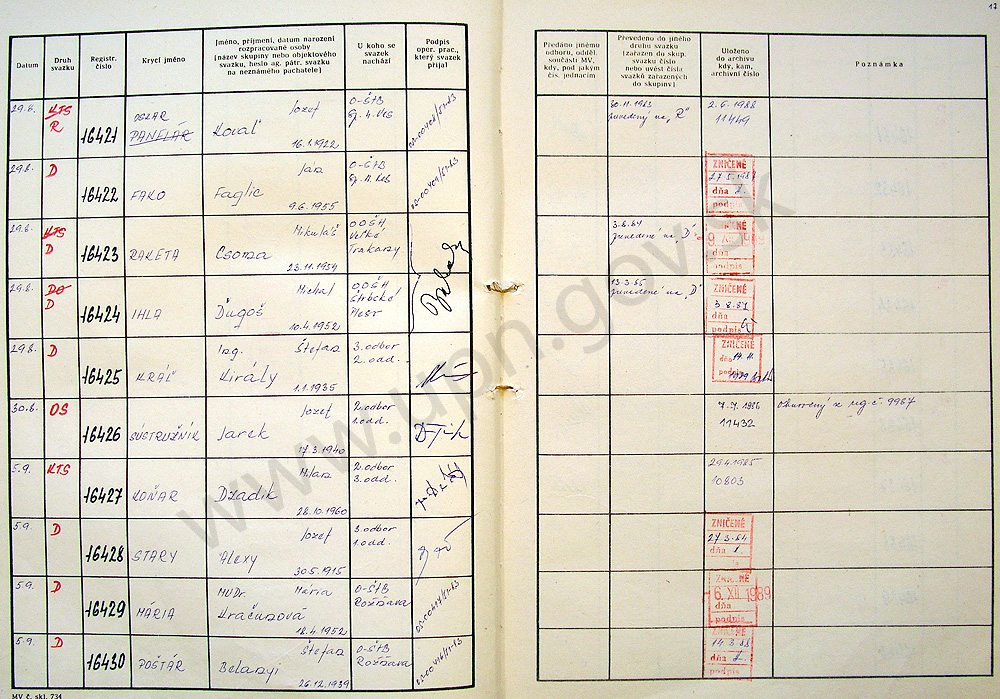 12
Datum
Druh
svazku
Registr.
číslo
Krycí jméno
Jméno, příjmení, datum narození
rozpracované osoby
[název skupiny nebo objektového
svazku, heslo ag. pátr. svazku
na neznámého pachatele]
U koho se
svazek
nachází
Podpis
oper. prac.,
který svazek
přijal
Předáno jinému
odboru, odděl.
součásti MV,
kdy, pod jakým
čís. jednacím
Převedeno do jiného
druhu svazku
[zařazen do skup.
svazku číslo
nebo uvést čísla
svazků zařazených
do skupiny]
Uloženo
do archivu
kdy, kam,
archivní číslo
Poznámka
29.8.
KTS
R
16421
PANELÁR
Jozef
Kovaľ
16.1.1922
O-ŠtB
30.11.1983
prevedený na „R"
2.6.1988
11449
29.8.
D
16422
FAKO
Ján
Faglic
9.6.1955
O-ŠtB
ZNIČENÉ
27.5.198
dňa
podpis
29.8.
KTS
D
16423
RAKETA
Mikuláš
Csoma
23.11.1954
OOŠH
Veľké
Trakany
3.8.84
prevedené na „D"
ZNIČENÉ
dňa
podpis
29.8.
PO
D
16424
IHLA
Michal
Ďugoš
10.4.1952
OOŠH
13.3.86
prevedené na „D"
ZNIČENÉ
3.8.87
dňa
podpis
29.8.
D
16425
KRÁĽ
Ing. Štefan
Király
1.1.1935
3.odbor
2.odd.
ZNIČENÉ
dňa
podpis
30.8.
OS
16426
SÚSTRUŽNÍK
Jozef
Jarek
17.3.1940
2.odbor
1.odd.
7.7.1986
11432
z reg.č. 9987
5.9.
KTS
16427
KOŇAR
Milan
Dzadik
28.10.1960
2.odbor
3.odd.
29.4.1985
10803
5.9.
D
16428
STARY
Jozef
Alexy
30.5.1915
3.odbor
1.odd.
ZNIČENÉ
27.3.84
dňa
5.9.
D
16429
MÁRIA
MUDr. Mária
Kračunová
12.4.1952
O-ŠtB
Rožňava
ZNIČENÉ
6. XII. 1989
dňa
podpis
5.9.
D
16430
POŠTÁR
Štefan
Belanyi
26.12.1939
O-ŠtB
Rožňava
ZNIČENÉ
14.3.88
dňa
podpis
MV č. skl. 734
www.upn.gov.sk